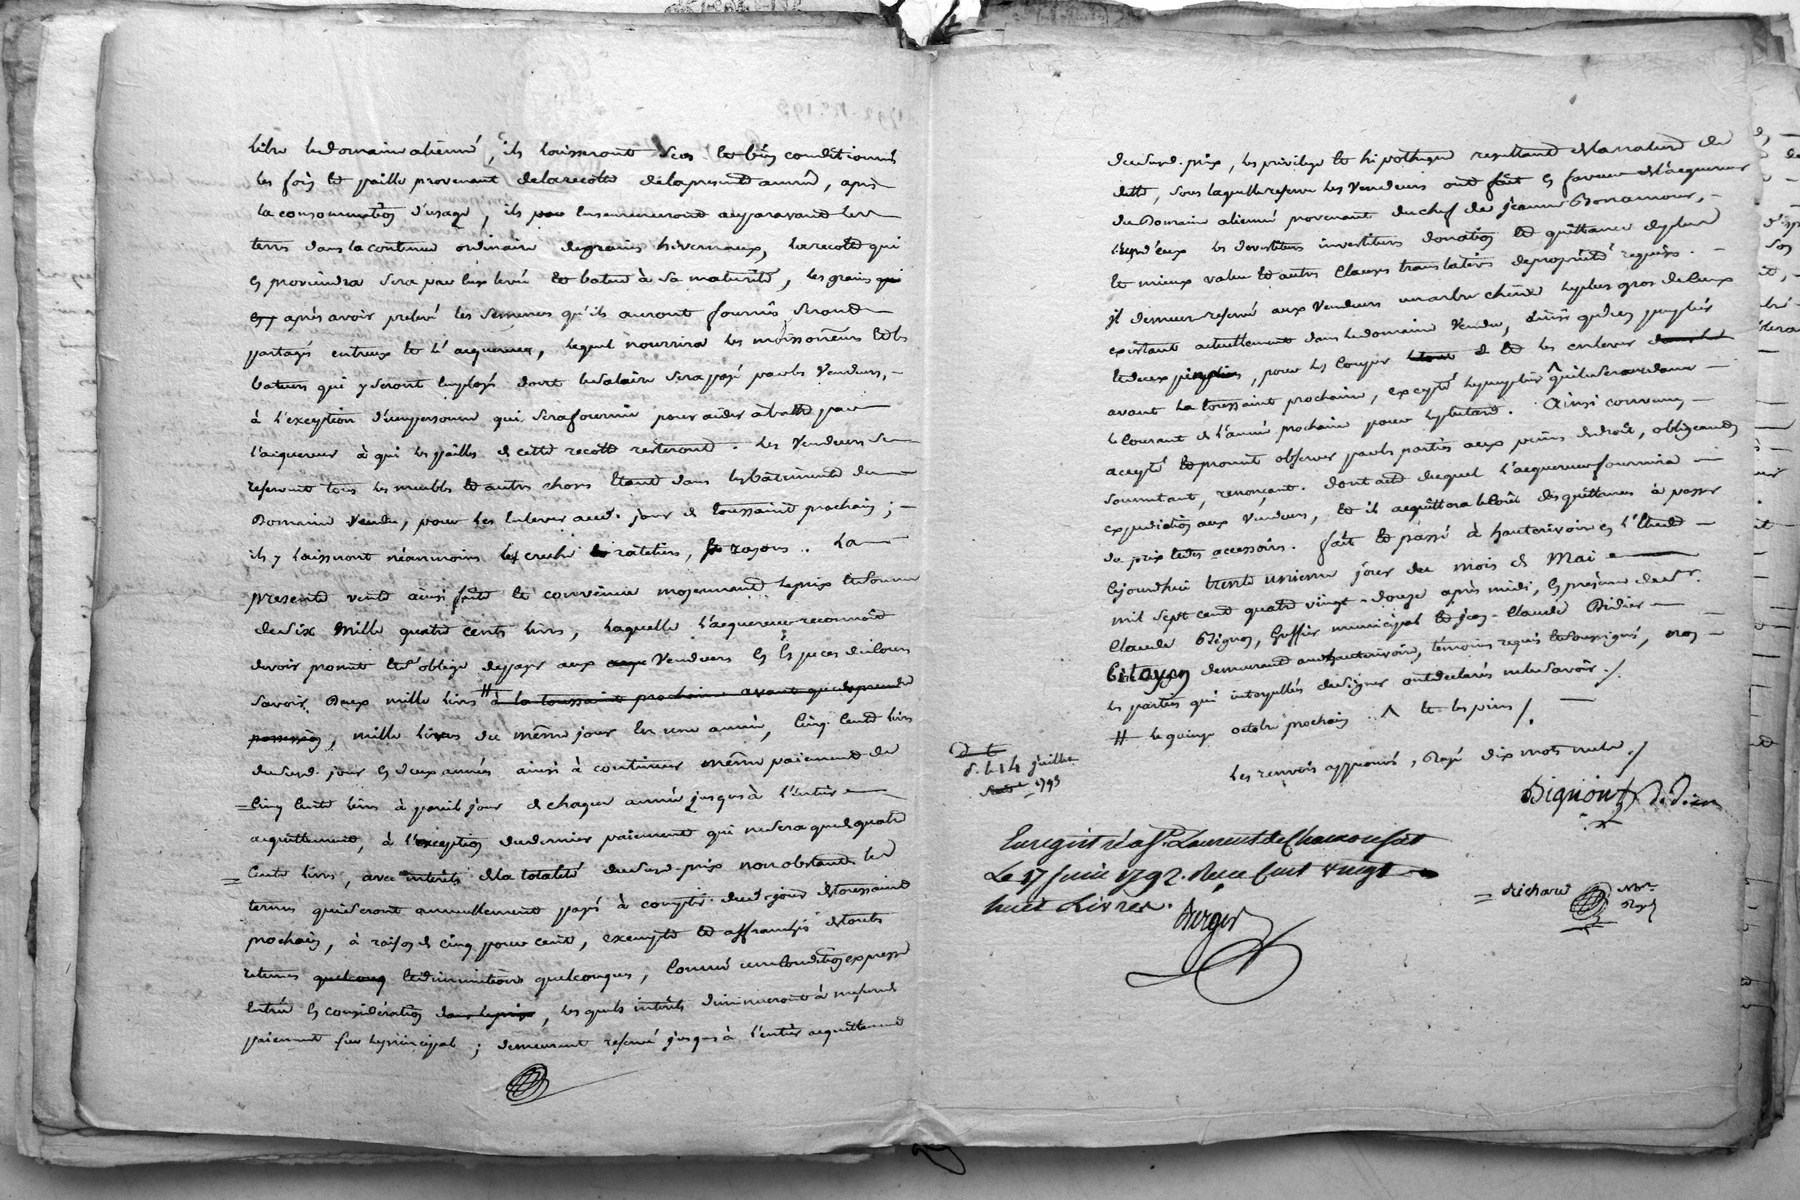 libre le domaine alienné, ils laisseront secs et bien conditionnés
les foin et paille provenant de la recolte de la presente année, après
la consommation d'usage, ils ensemenceront auparavant les
terres dans la contenue ordinaire de grains hivernaux, la recolte qui
en proviendra sera par eux levée et batue à sa maturité, les grains
après avoir prelevé les semences qu'ils auront fournis seront
partagés entreux et l'acquereur, lequel nourrira les moissonneurs et les
bateurs qui y seront employés dont le salaire sera payé par les vendeurs,
à l'exception d'une personne qui sera fournie pour aider à battre par
l'acquereur à qui les pailles de cette recolte resteront. les vendeurs se
reservent tous les meubles et autres choses etant dans les bâtiments du
Domaine vendu, pour les enlever aud. jour de toussaint prochain;
ils y laisseront néanmoins les creche rateliers, rayons. La
presente vente ainsi faite et convenue moyennant le prix et somme
de six mille quatre cents livres, laquelle l'acquereur reconnoit
devoir promet et s'oblige de payer aux vendeurs en especes de cours
savoir, Deux mille livres # à la toussaint prochaine avant que de prendre
possession, mille livres du même jour en une année, cinq cents livres
dud. jour en deux années ainsi à continuer même paiement de
cinq cents livres à pareil jour de chaque année jusques à l'entier
acquittement, à l'exception du dernier paiement qui ne sera que de quatre
cents livres, avec interêts de la totalité dud. prix nonobstant les
termes qui seront annuellement payés à compter dud. jour de toussaint
prochain, à raison de cinq pour cent, exempts et affranchis de toutes
retenues quelconq et diminutions quelconques, comme une condition expresse
entrée en considération dans le prix, lesquels intérêts diminueront à mesure de
paiement sur le principal; demeurant reservé jusques à l'entier acquittement
dud. prix, les privilege et hipotheque resultant de la nature de
dette, sous laquelle reserve les vendeurs ont fait en faveur de l'acquereur
du Domaine alienné provenant du chef de jeanne Bonnamour,
les devestitures investitures donation et quittance de plus
et mieux value et autres clauses translatives de propriété requises.
il demeure reservé aux vendeurs un arbre chêne le plus gros de ceux
existant actuellement dans le domaine vendu, ainsi qu'un peuplier
et deux, pour les couper et les enlever
avant la toussaint prochaine, excepté le peuplier ^ qui le sera dans
le courant de l'année prochaine pour le plutard. Ainsi convenu
accepté et promit observer par les parties aux peines de droit, obligeant
soumettant, renonçant. Dont acte duquel l'acquereur fournira
expedition aux vendeurs, et il acquittera le coût des quittances à passer
du prix et des accessoirs. fait et passé à hauterivoire en l'Etude
cejourdhui trente unieme jour du mois de Mai
mil sept cent quatre vingt-douze après midi, en presence de sr.
Claude Bignon, Greffier municipal et jean-Claude Didier
Citoyen demeurant aud. hauterivoire, témoins requis et soussignés, non
les parties qui interpellées de signer ont declarés ne le savoir ./.
# le quinze octobre prochain .. ^ et les pins /.
les renvois approuvés, Rayé dix mots nuls ./
Bignon Didier
d. le 14 juillet
1793
Enregistré à St. Laurent de Chamousset
Le 17 juin 1792. Reçu cent vingt
huit Livres.
Berger
Richard Nre
Royal